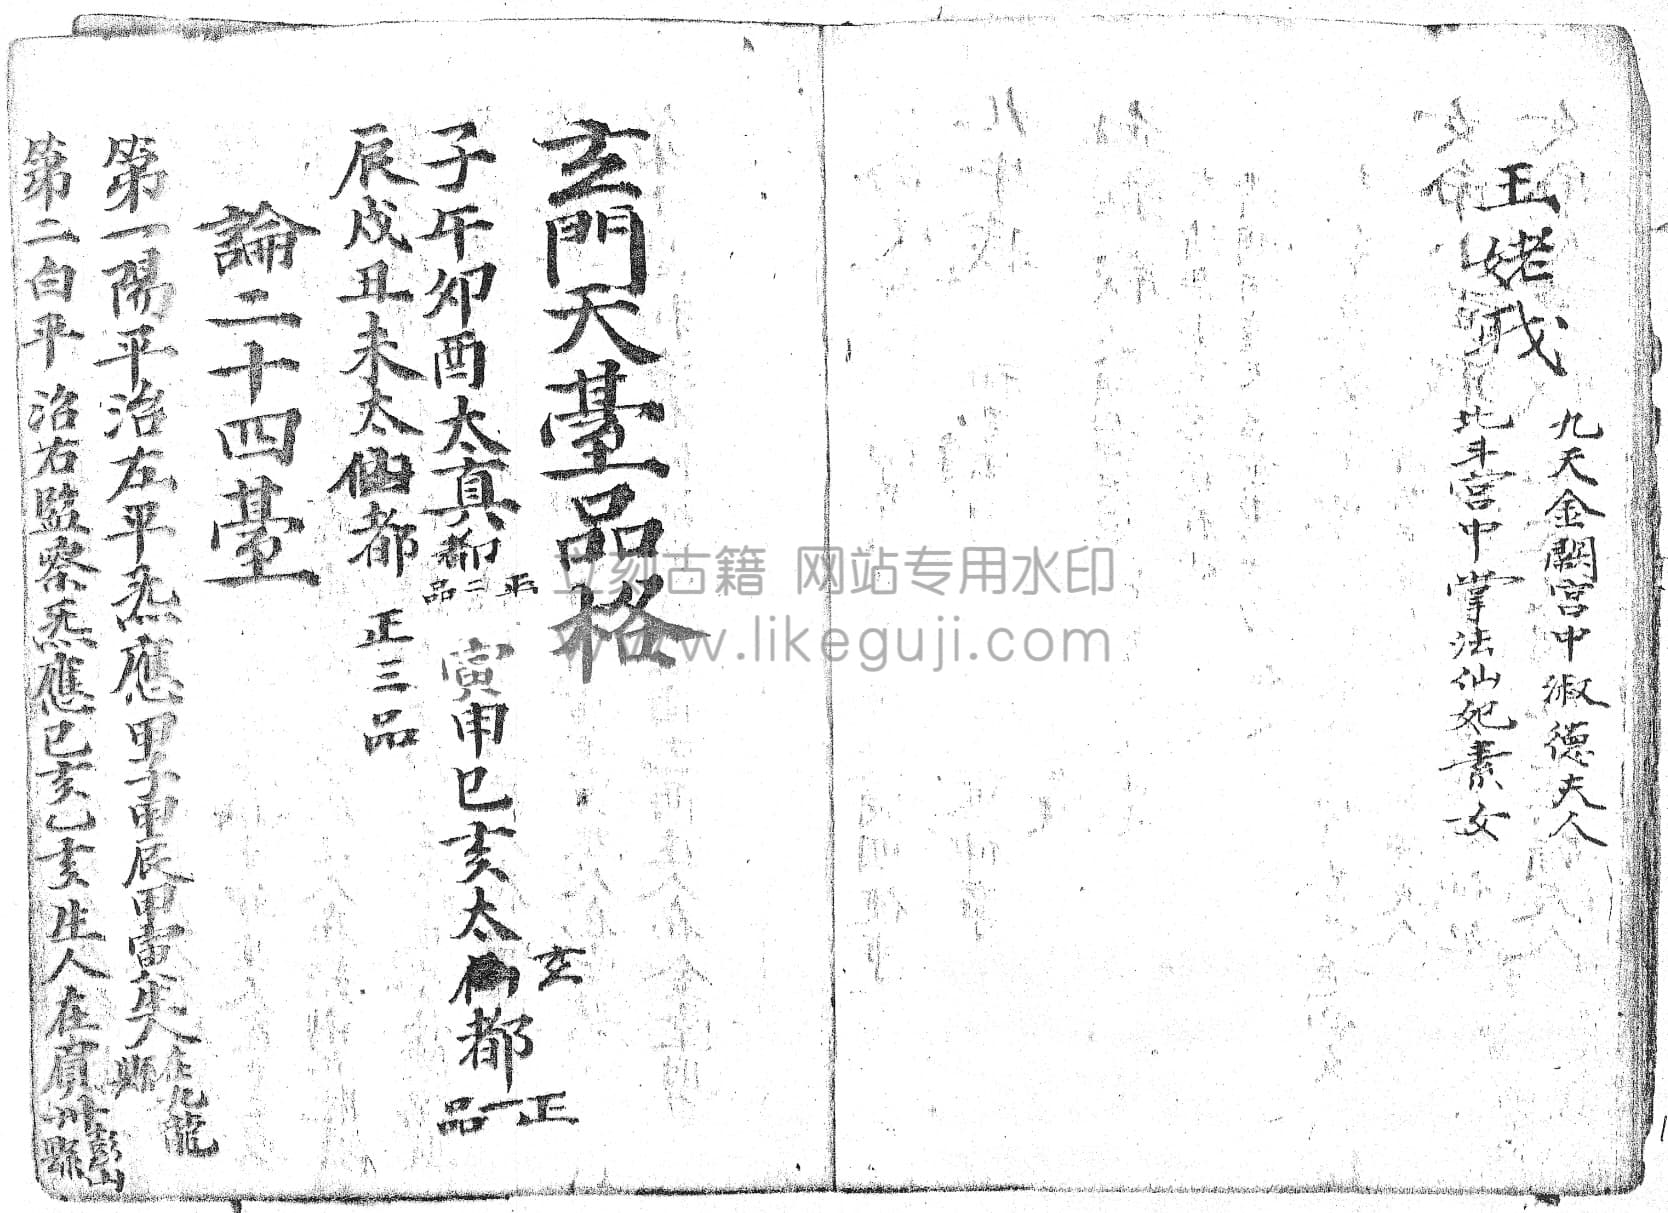 王姥戈
九天金闕宮中淑德夫人
北斗宮中掌法仙妃素女
玄門天臺品格
子午卯酉太真都正二品 寅申巳亥太都正一品
玄
辰戌丑未太仙都 正三品
論二十四臺
第一陽平治左平炁應甲子甲辰甲寅生人在九龍縣
第二白平治右監察炁應己亥乙亥生人在原州彭山縣
立刻古籍 网站专用水印
www.likeguji.com